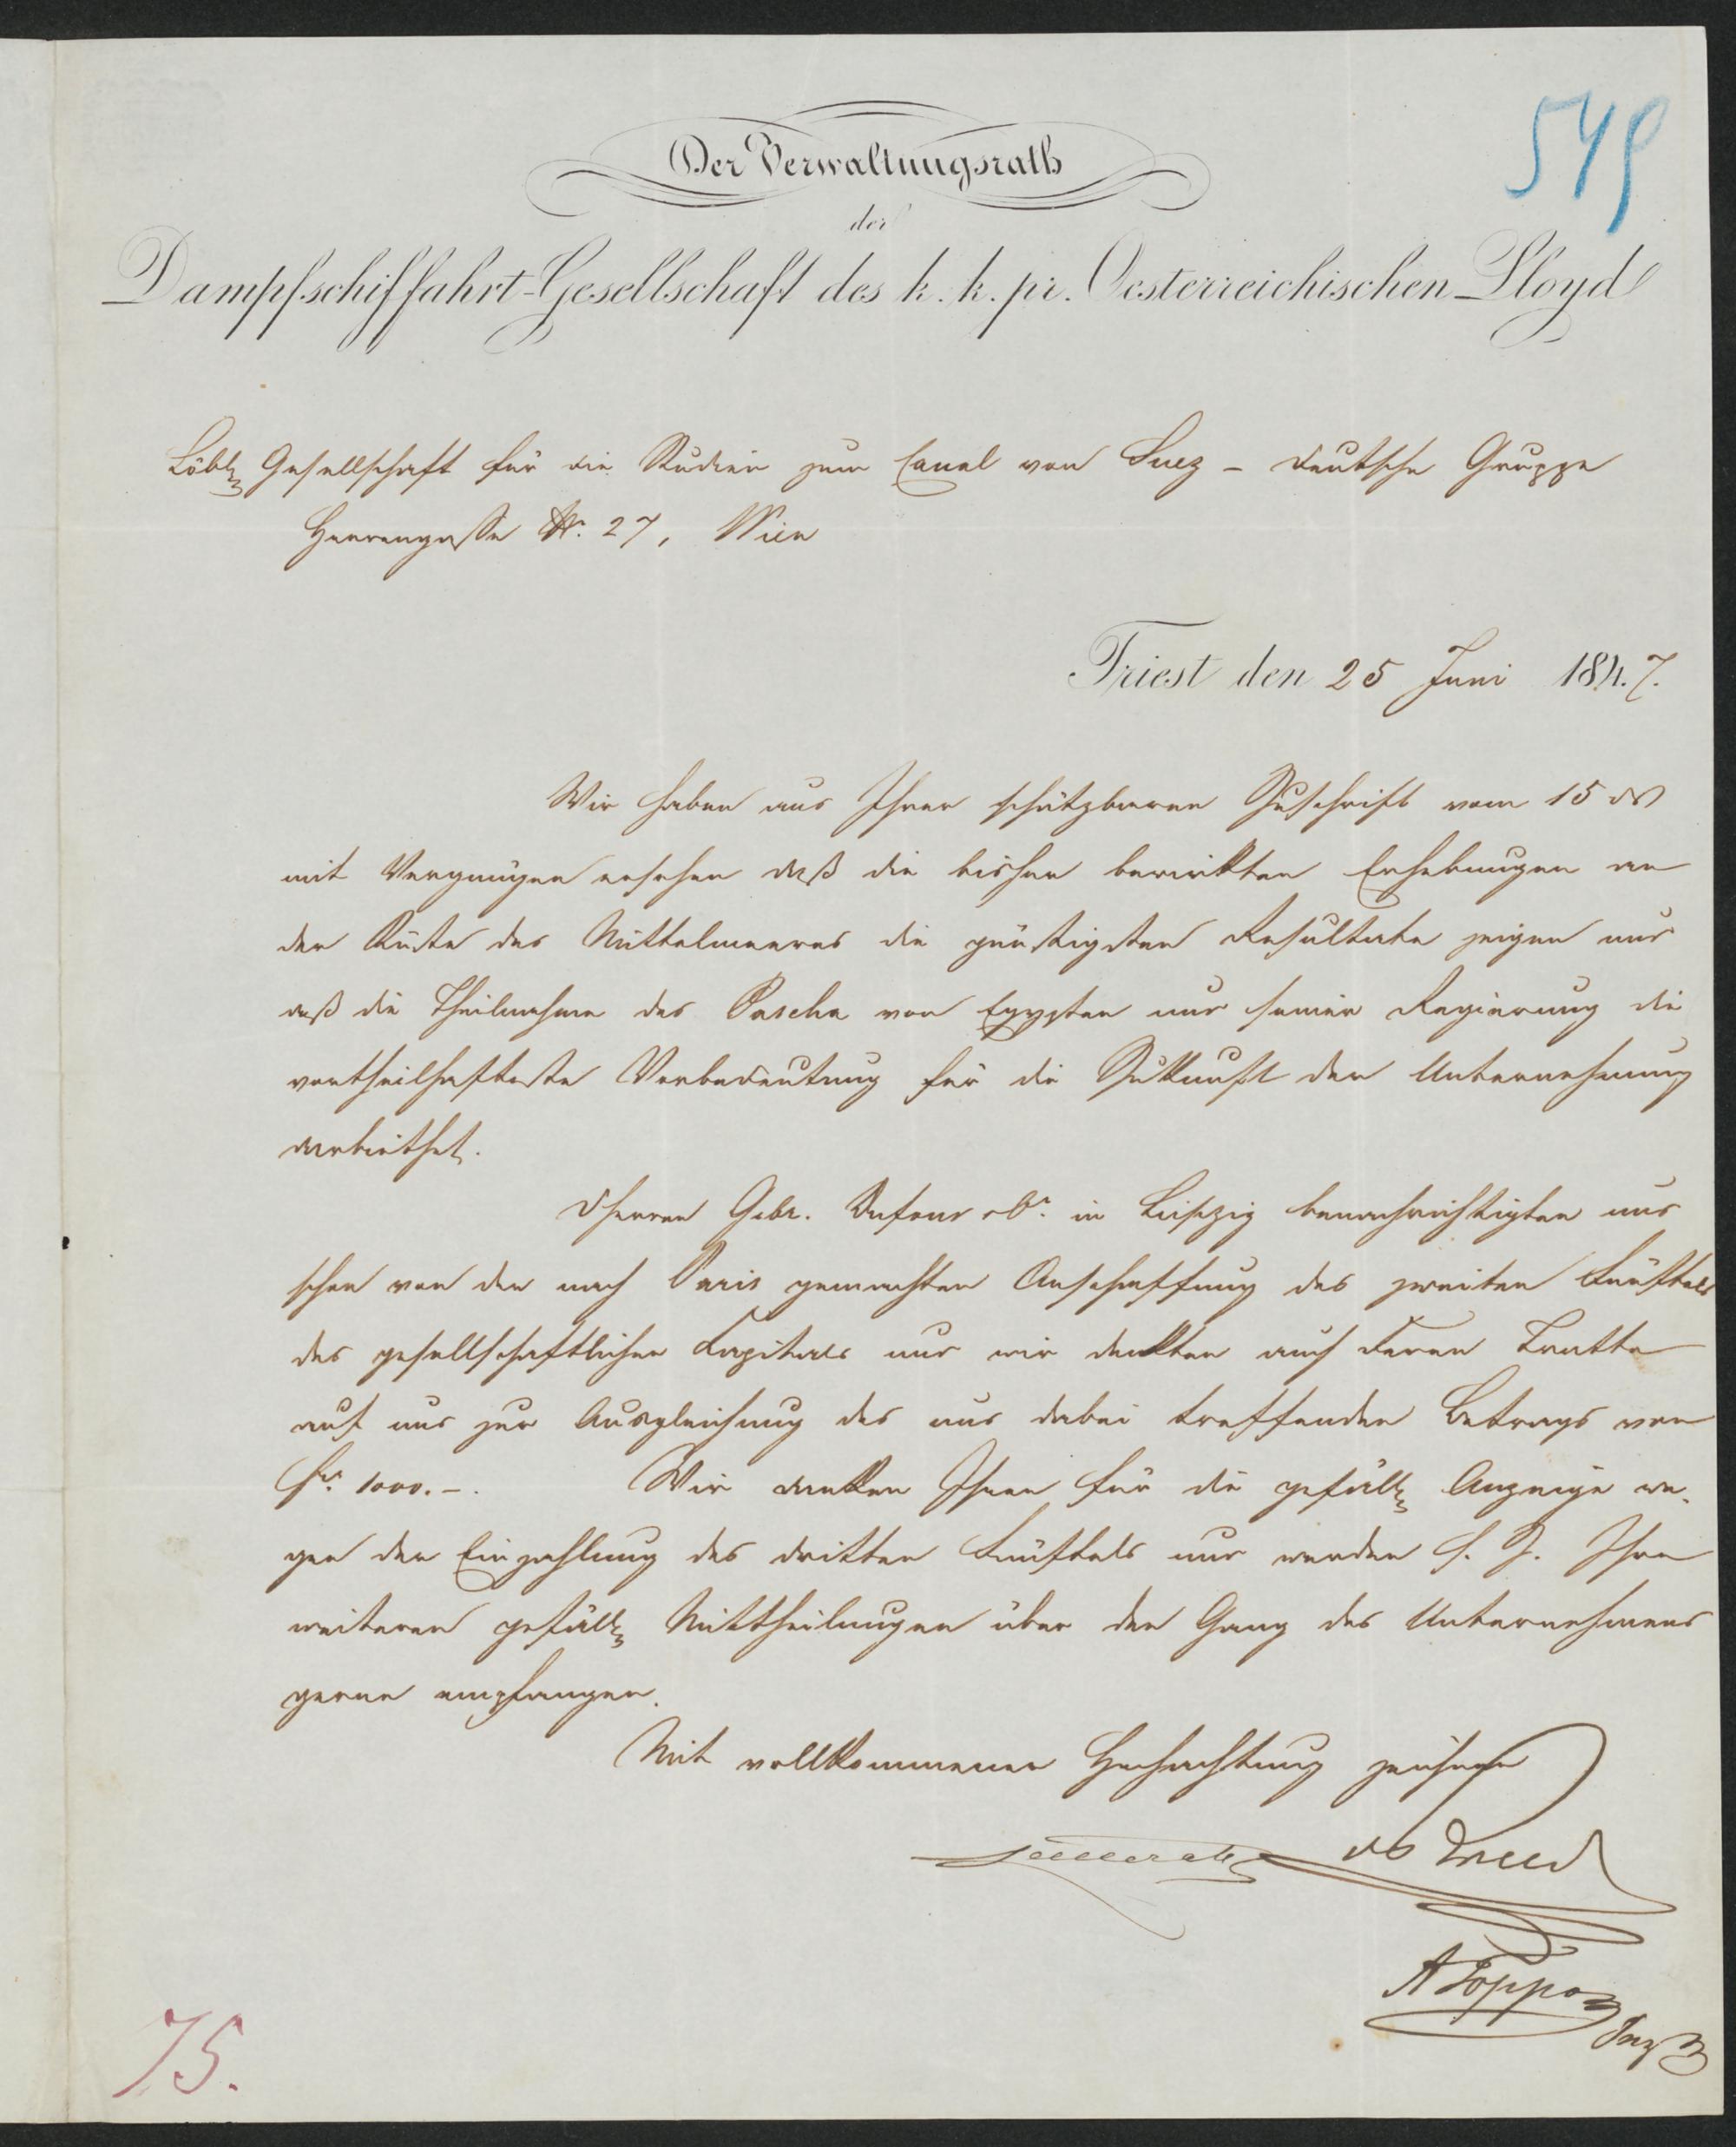 549
Der Verwaltungsrath
der
Dampfschiffahrt-Gesellschaft des k. k. pr. Oesterreichischen Lloyd
Löbl. Gesellschaft für die Studien zum Canal von Suez – deutsche Gruppe
Herrengasse Nr. 27, Wien
Triest den 25 Juni 1847.
Wir haben aus Ihrer schätzbaren Zuschrift vom 15 ds
mit Vergnügen ersehen daß die bisher bewirkten Erhebungen an
der Küste des Mittelmeeres die günstigsten Resultate zeigen und
daß die Theilnahme des Pascha von Egypten und seiner Regierung die
vortheilhafteste Vorbedeutung für die Zukunft der Unternehmung
darbiethet.
Herren Gebr. Dufour & Co. in Leipzig benachrichtigten uns
schon von der nach Paris gemachten Anschaffung des zweiten Fünftels
des gesellschaftlichen Kapitals und wir deckten auch deren Tratte
auf uns zur Ausgleichung des uns dabei treffenden Betrags von
fr. 1000.–. Wir danken Ihnen für die gefäll. Anzeige we-
gen der Einzahlung des dritten Fünftels und werden s. Z. Ihre
weiteren gefäll. Mittheilungen über den Gang des Unternehmens
gerne empfangen.
Mit vollkommener Hochachtung zeichnen
75.